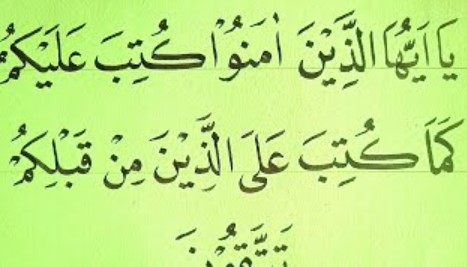 يَا اَيُّهَا الَّذِيْنَ اٰمَنُوْا كُتِبَ عَلَيْكُمُ
كَمَا كُتِبَ عَلَى الَّذِيْنَ مِنْ قَبْلِكُمْ
تَتَّقُوْنَ